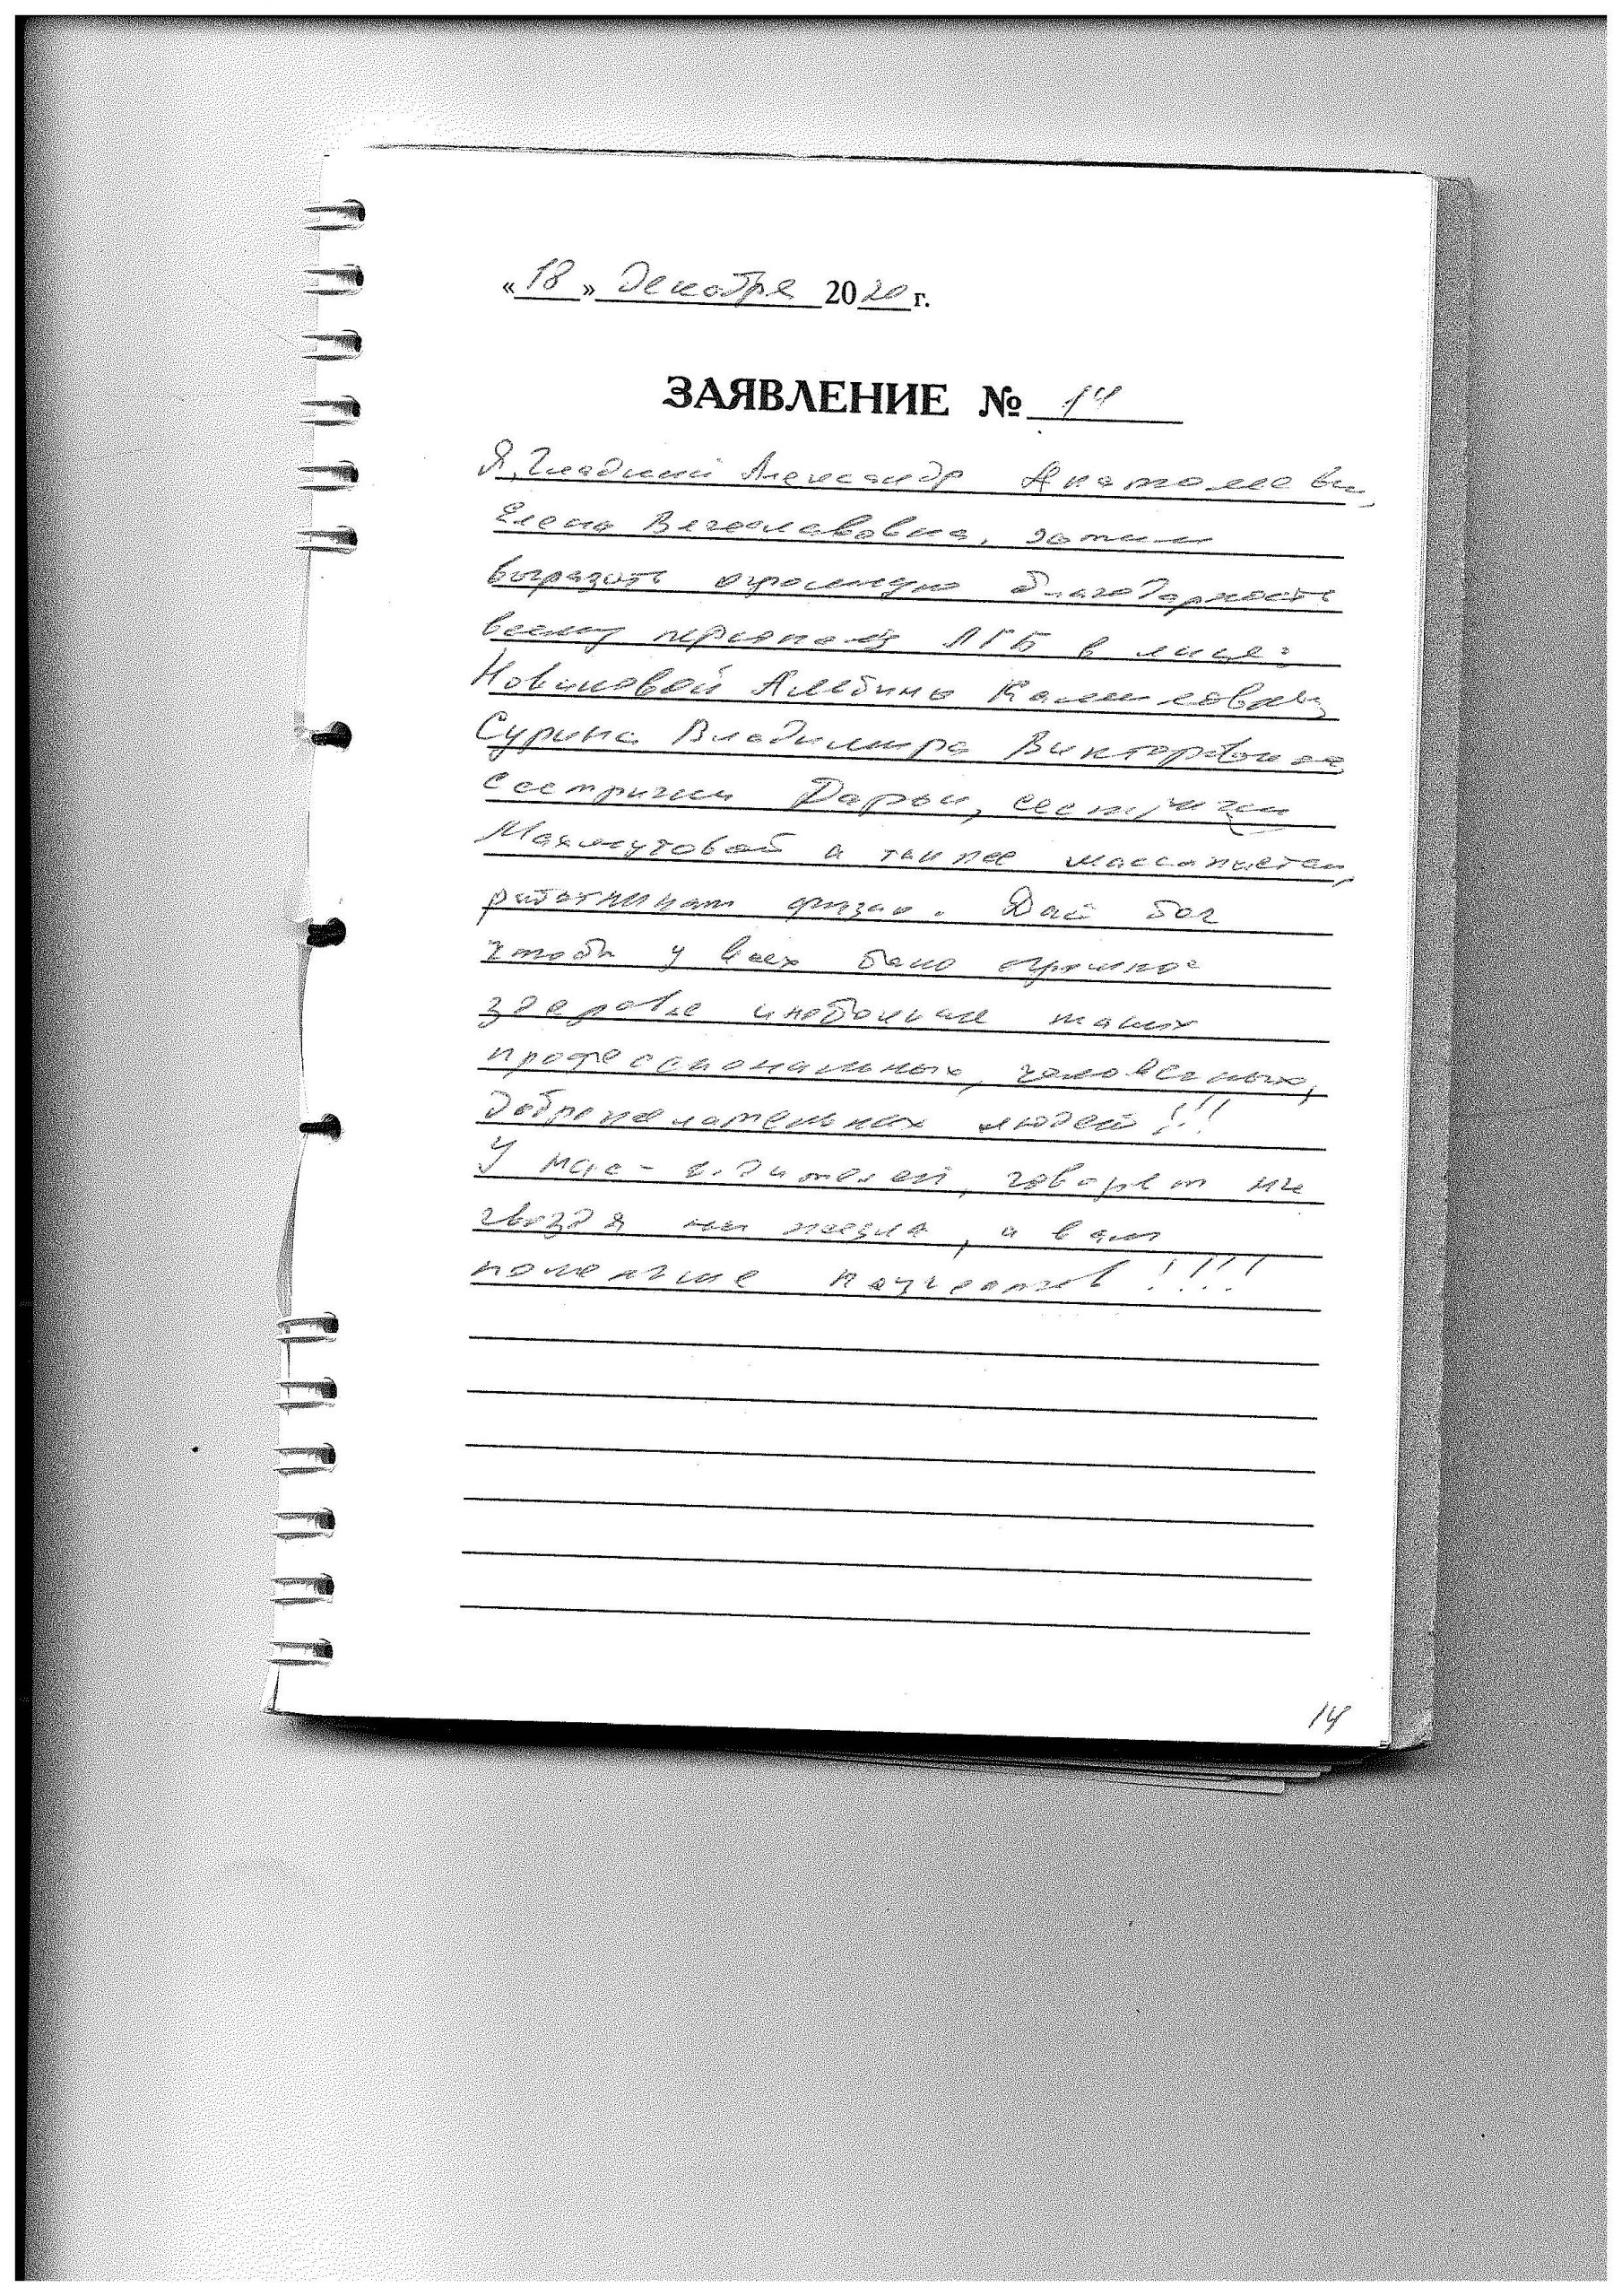 «18» Декабря 2020 г.
ЗАЯВЛЕНИЕ № 14
Я, Гладкий Александр Анатольевич,
Елена Вячеславовна, хотим
выразить огромную благодарность
всему персоналу ЛГБ в лице:
Новиковой Альбины Камиловны
Сурина Владимира Викторовича
сестрички Дарьи, сестрички
Махмутовой а также массажистам,
работникам физио. Дай бог
чтобы у всех было огромное
здоровье и побольше таких
профессиональных, человечных,
доброжелательных людей!!!
У нас - водителей, говорят ни
гвоздя ни жезла, а вам
поменьше пациентов!!!!
14